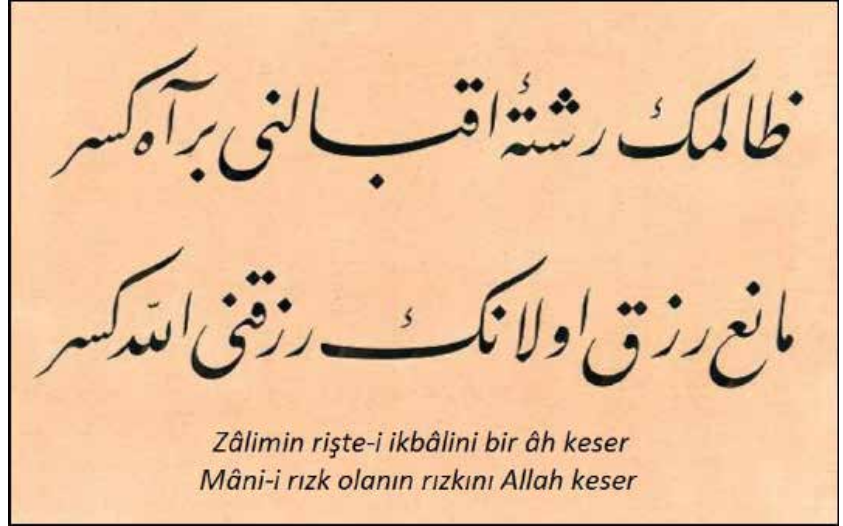 ظالمك رشتهٔ اقبالنی بر آه كسر
مانع رزق اولانك رزقنی الله كسر
Zâlimin rişte-i ikbâlini bir âh keser
Mâni-i rızk olanın rızkını Allah keser